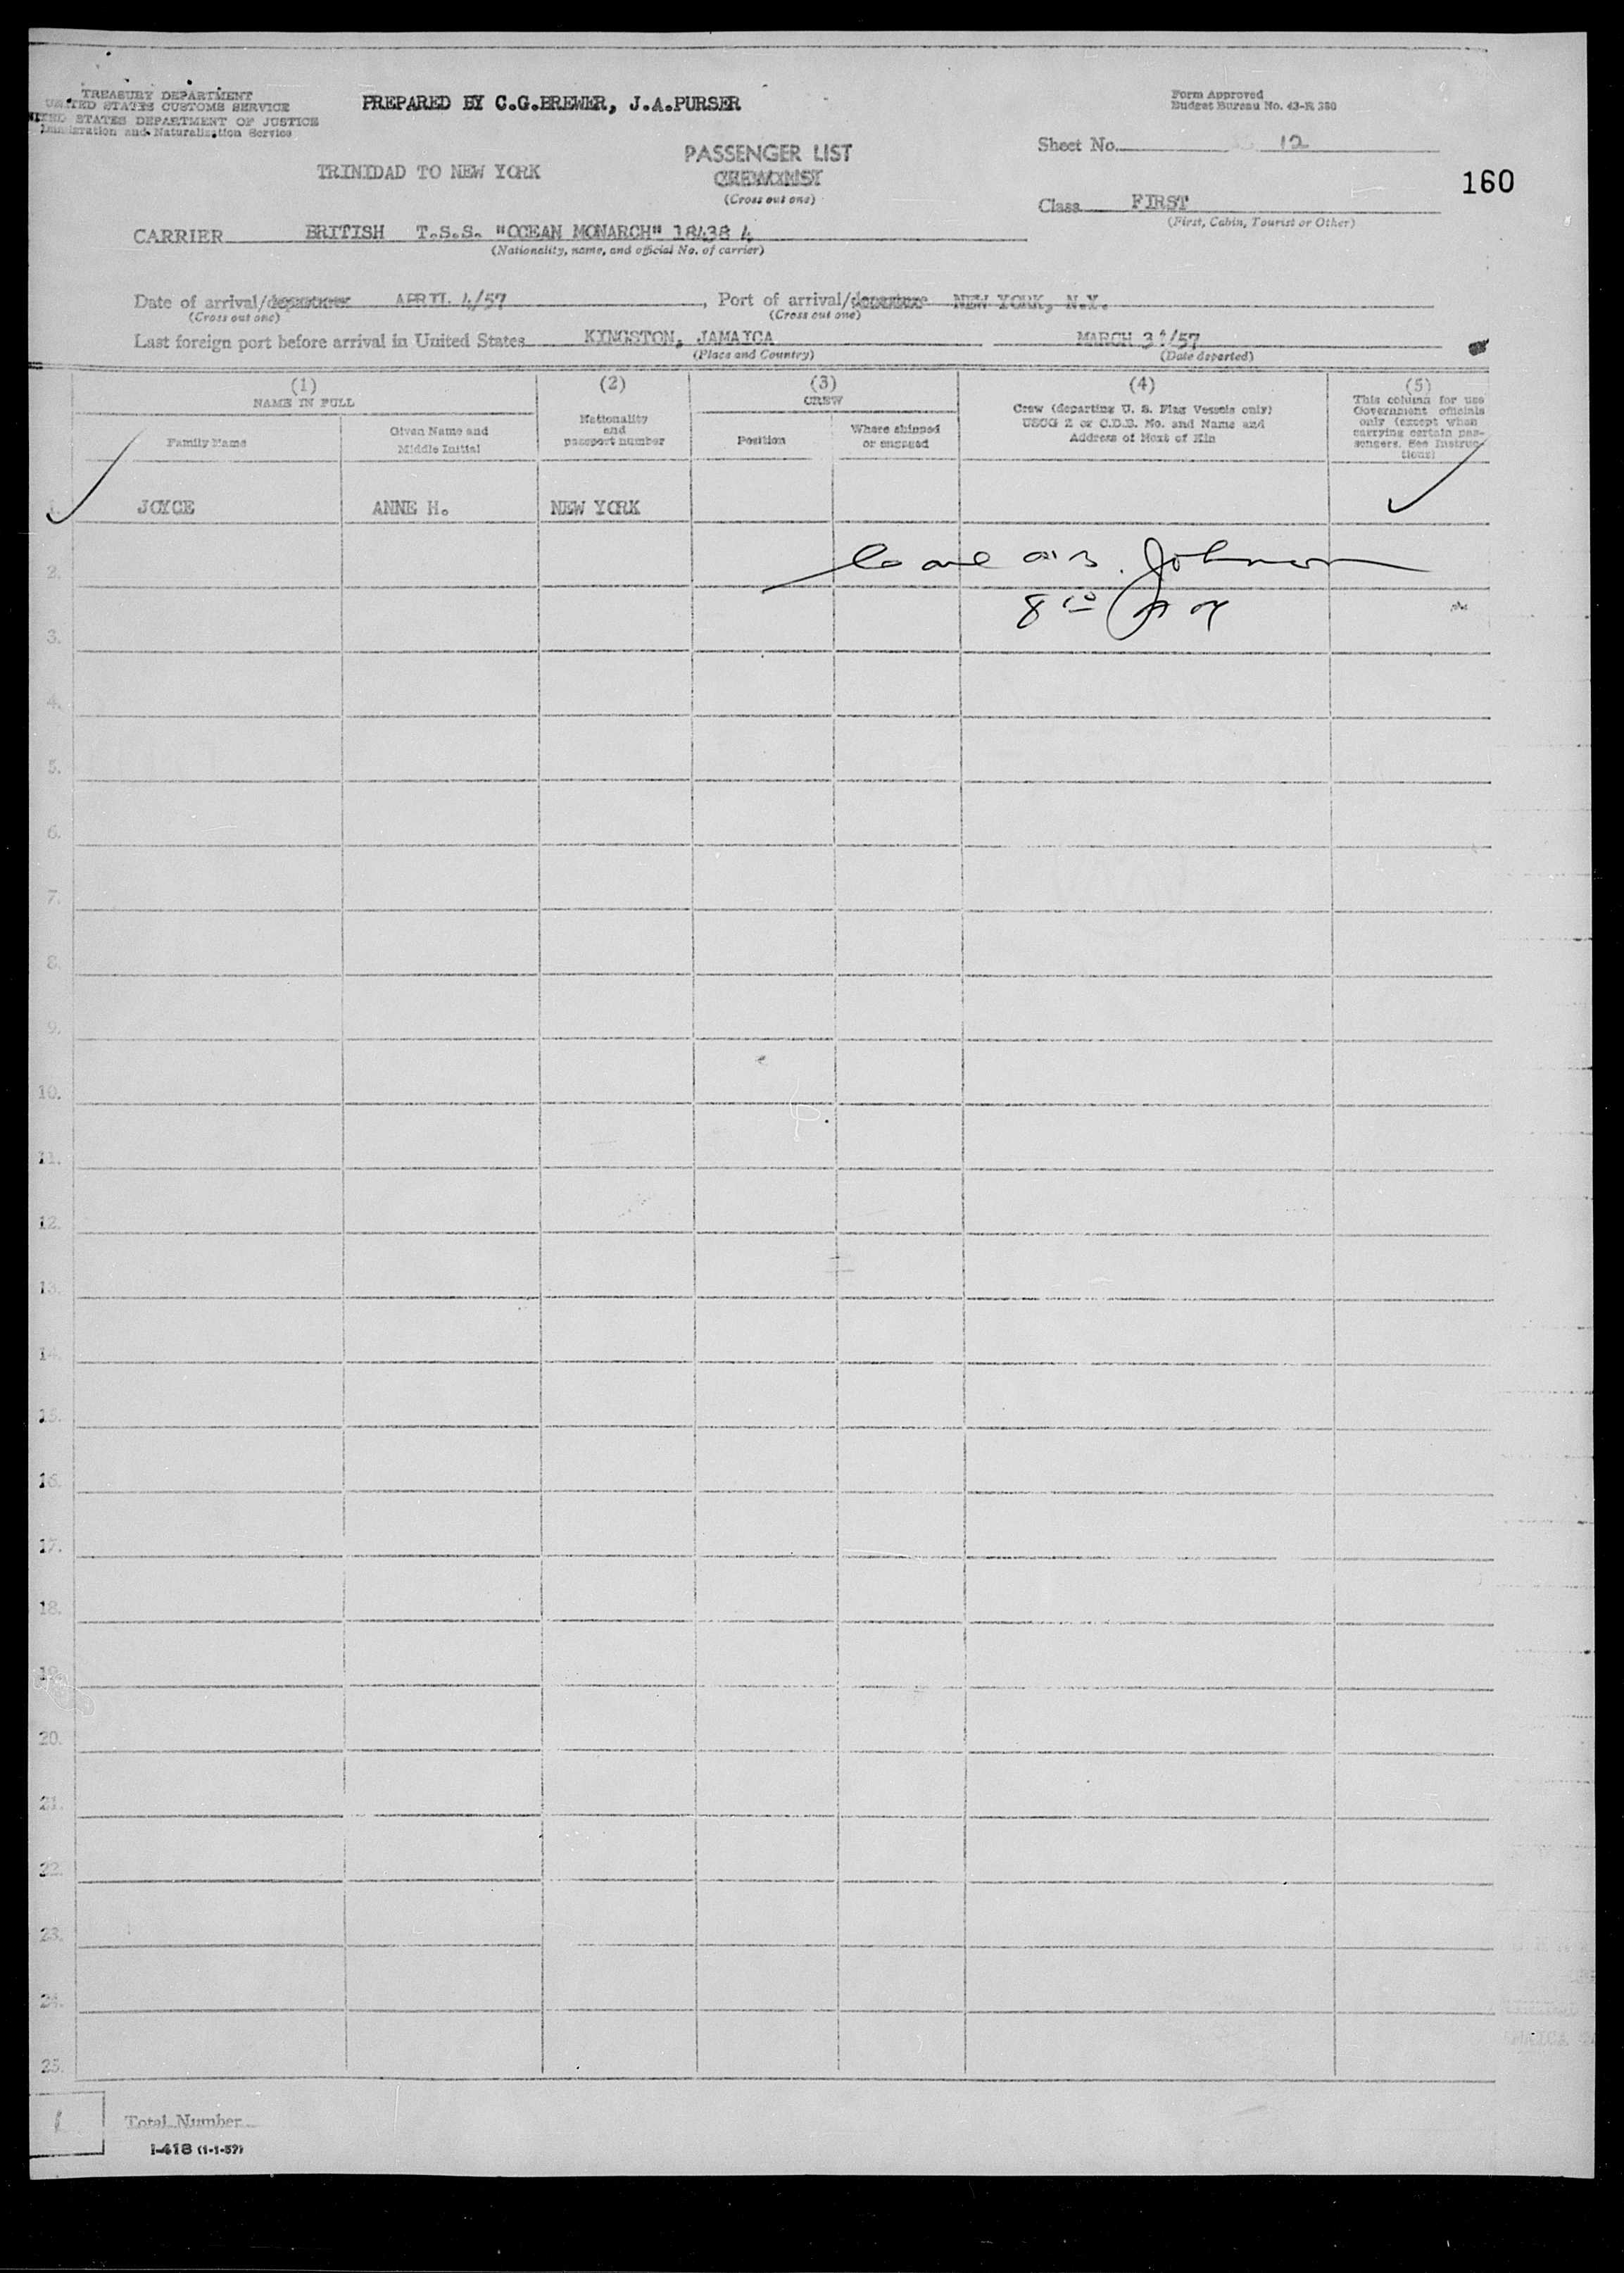 TREASURY DEPARTMENT
UNITED STATES CUSTOMS SERVICE
UNITED STATES DEPARTMENT OF JUSTICE
Immigration and Naturalization Service
PREPARED BY C.G.BREWER, J.A.PURSER
Form Approved
Budget Bureau No. 43-R 380
Sheet No. 12
TRINIDAD TO NEW YORK
PASSENGER LIST
CREW LIST
(Cross out one)
160
Class FIRST
(First, Cabin, Tourist or Other)
CARRIER BRITISH T.S.S. "OCEAN MONARCH" 18438 4
(Nationality, name, and official No. of carrier)
Date of arrival/departure APRIL 4/57, Port of arrival/departure NEW YORK, N.Y.
(Cross out one) (Cross out one)
Last foreign port before arrival in United States KINGSTON, JAMAICA MARCH 31/57
(Place and Country) (Date departed)
(1)
NAME IN FULL
Family Name
Given Name and
Middle Initial
(2)
Nationality
and
passport number
(3)
CREW
Position
Where shipped
or engaged
(4)
Crew (departing U. S. Flag Vessels only)
USCG Z or C.D.B. No. and Name and
Address of Next of Kin
(5)
This column for use
Government officials
only (except when
carrying certain pas-
sengers. See Instruc-
tions)
1. JOYCE ANNE H. NEW YORK
2. Johnson
3.
4.
5.
6.
7.
8.
9.
10.
11.
12.
13.
14.
15.
16.
17.
18.
19.
20.
21.
22.
23.
24.
25.
1 Total Number
I-418 (1-1-57)